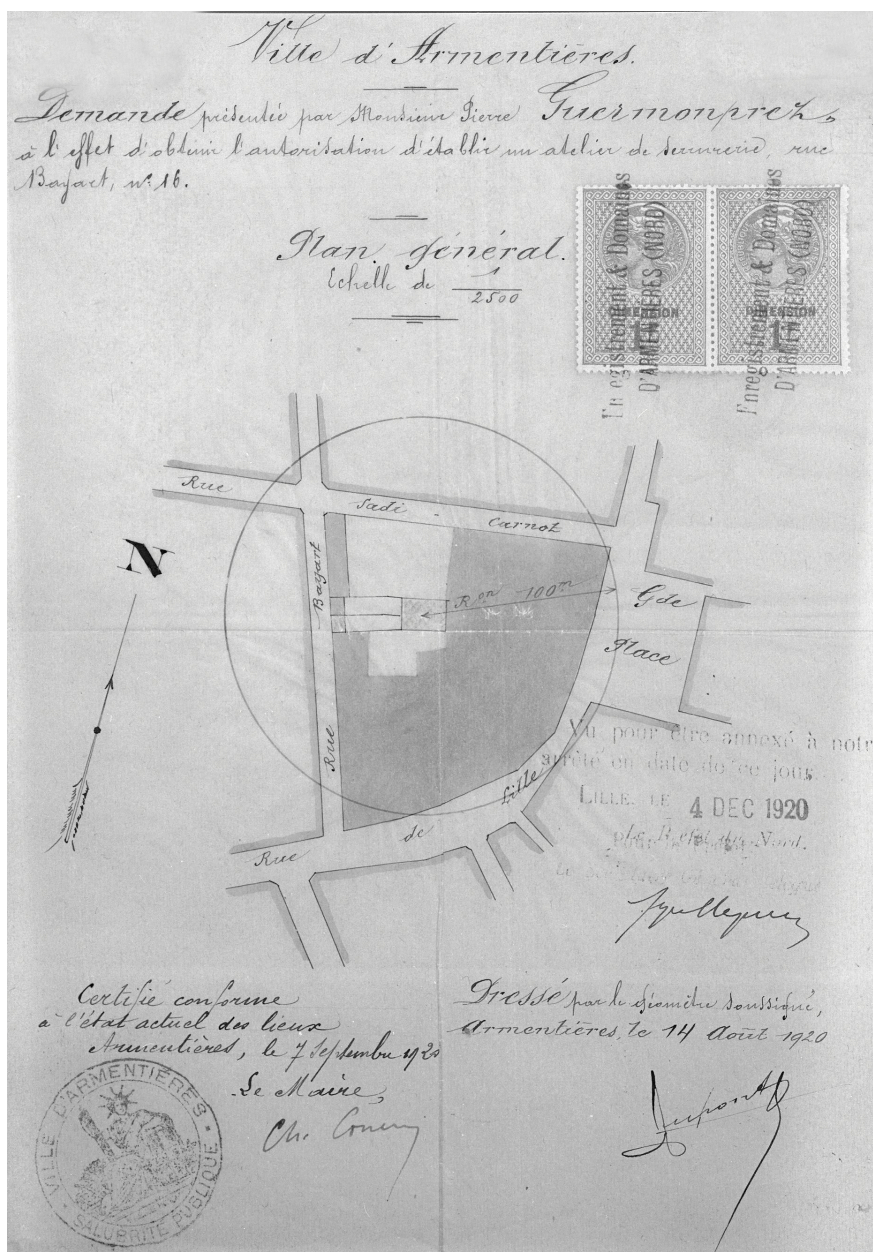 Ville d'Armentières.
Demande présentée par Monsieur Pierre Guermonprez,
à l'effet d'obtenir l'autorisation d'établir un atelier de serrurerie, rue
Bayart, n° 16.
Plan général.
Echelle de 1
2500
Enregistrement & Domaines
D'ARMENTIÈRES (NORD)
DIMENSION
1F
Enregistrement & Domaines
D'ARMENTIÈRES (NORD)
DIMENSION
1F
Rue Sadi - Carnot
N
Rue Bayart
Ron 100m
Gde
Place
Rue de Lille
Vu pour être annexé à notr
arrêté en date de ce jour.
LILLE, LE 4 DEC 1920
Le Préfet du Nord.
Certifié conforme
à l'état actuel des lieux
Armentières, le 7 Septembre 1920
Le Maire,
Dressé par le géomètre soussigné,
Armentières, le 14 Août 1920
Dupont
VILLE D'ARMENTIÈRES
SALUBRITÉ PUBLIQUE